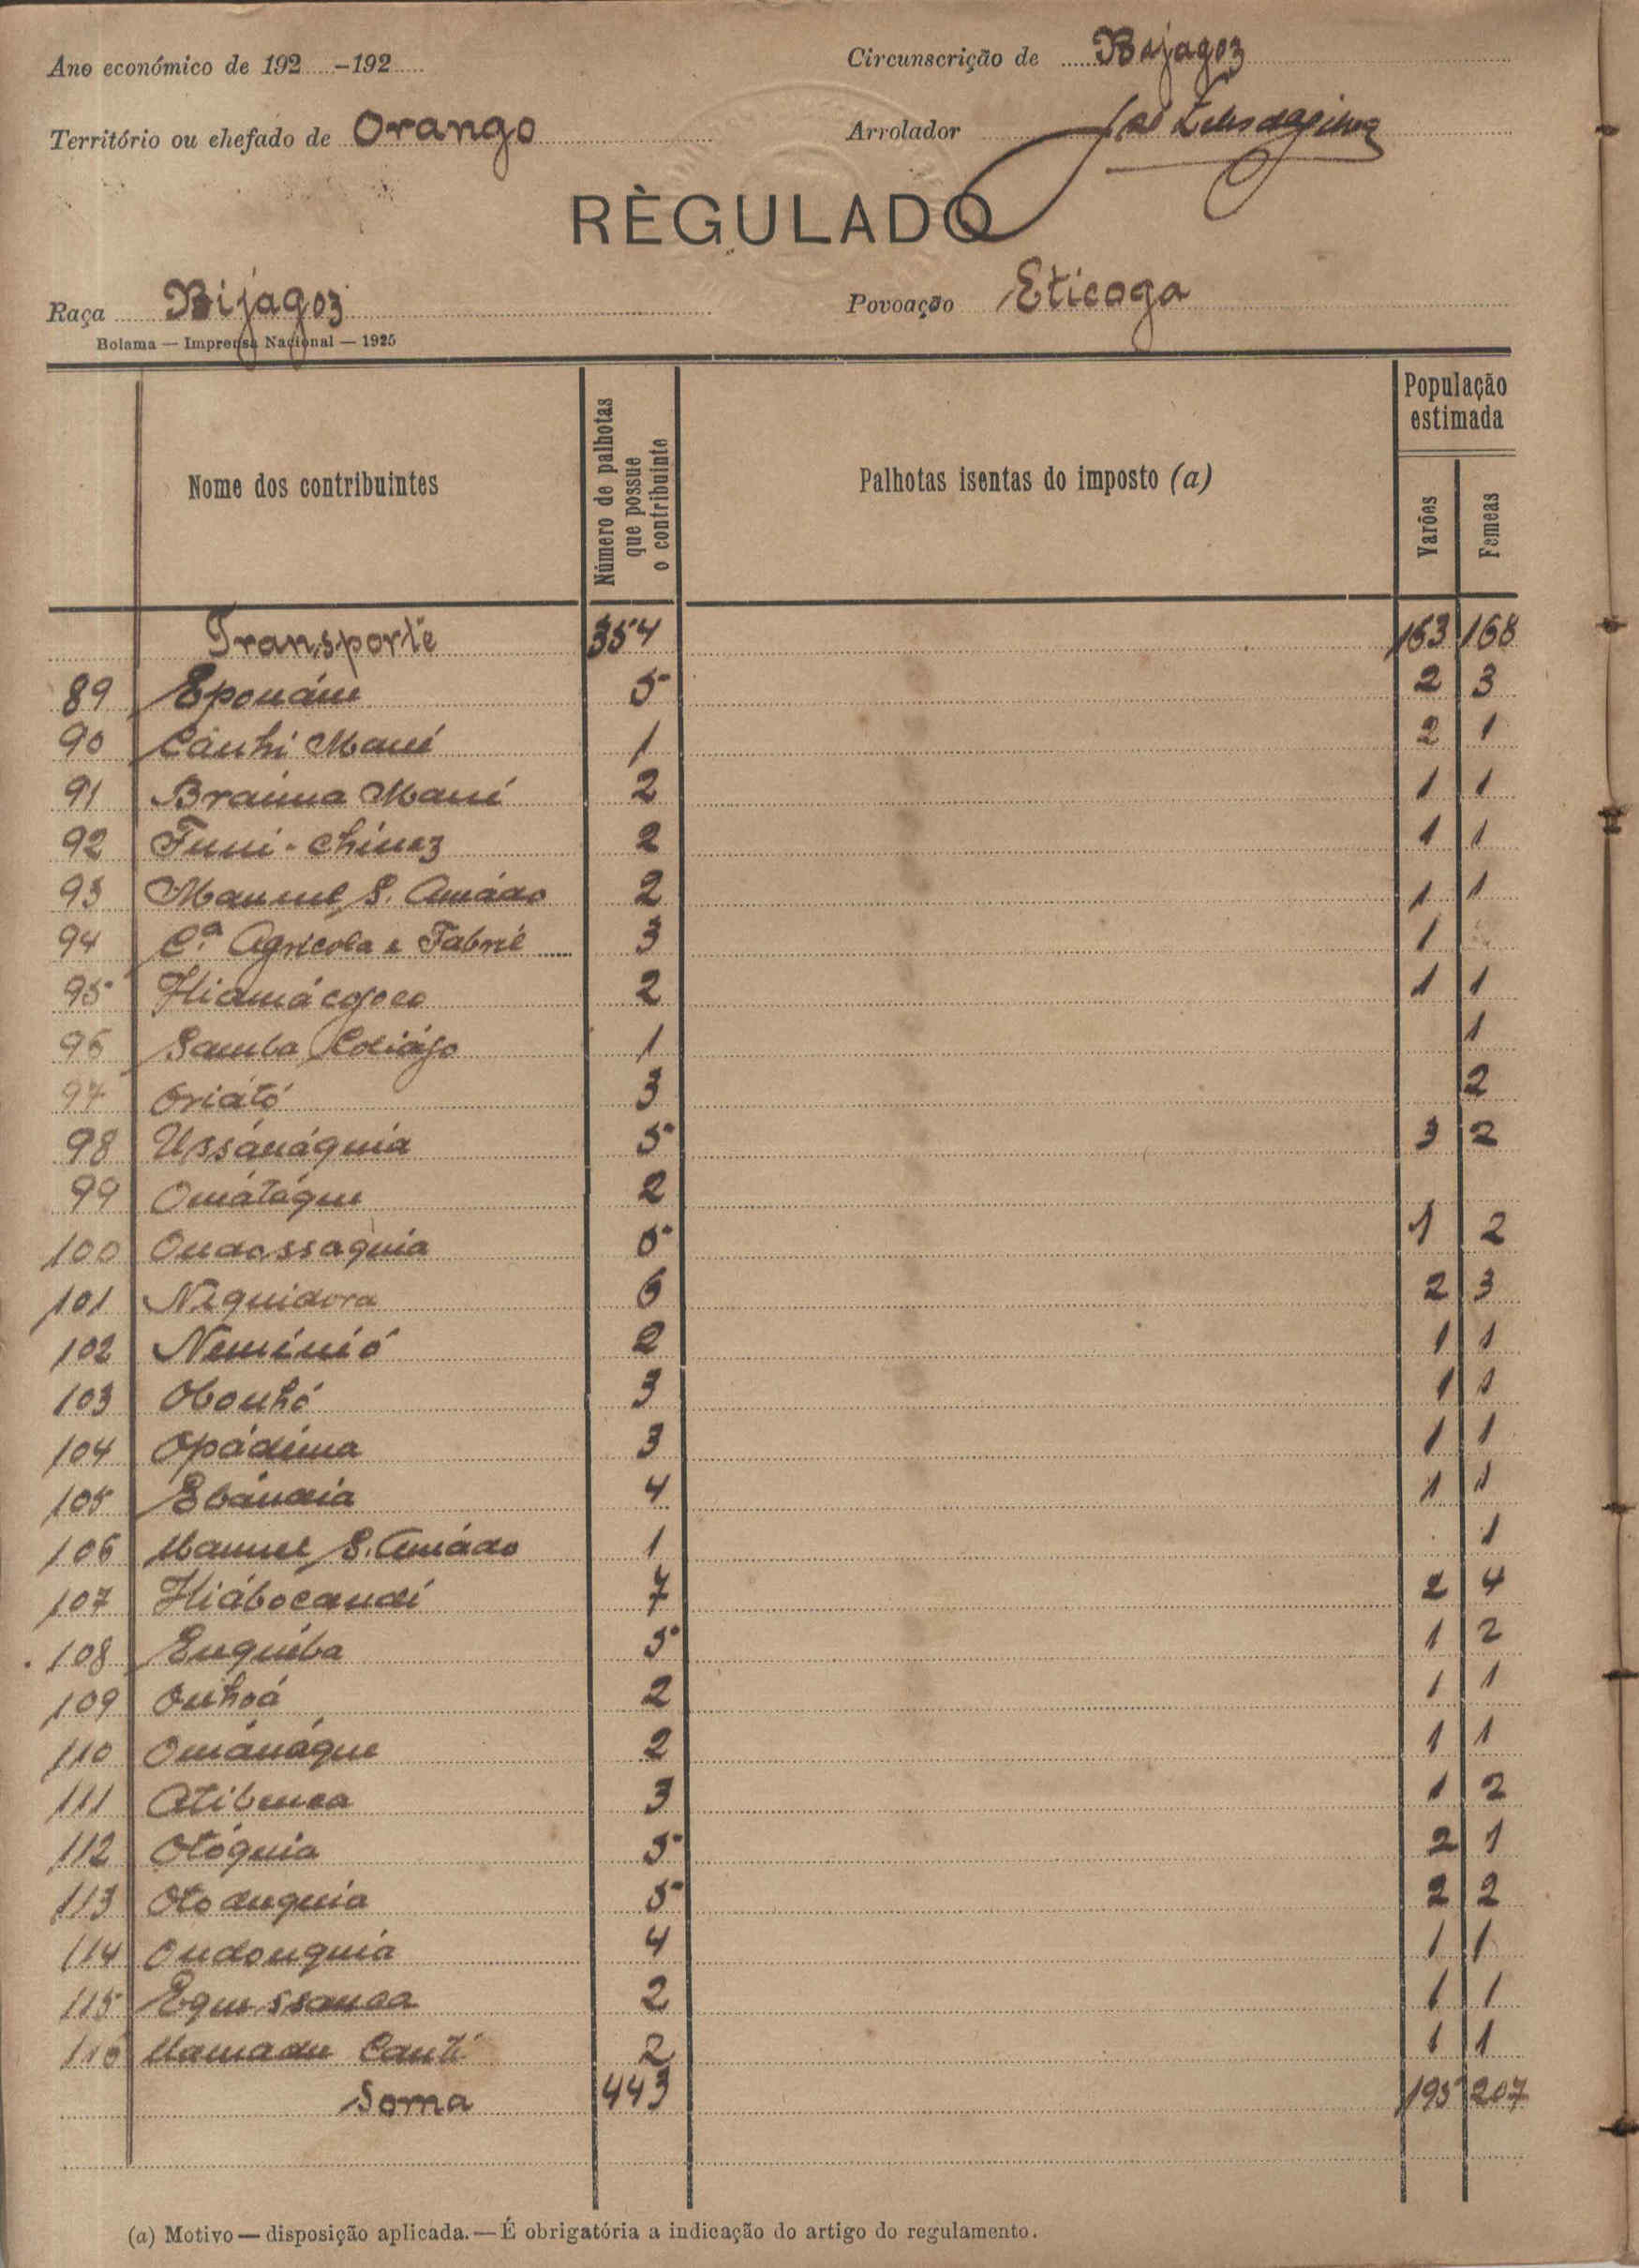 Ano económico de 192 -192
Circunscrição de Bijagoz
Território ou chefado de Orango
Arrolador José
RÈGULADO
Raça Bijagoz
Povoação Eticoga
Bolama — Imprensa Nacional — 1925
Nome dos contribuintes
Número de palhotas que possue o contribuinte
Palhotas isentas do imposto (a)
População estimada
Varões
Femeas
Transporte 354 163 168
89 Eponám 5 2 3
90 Canhi Mané 1 2 1
91 Braima Mané 2 1 1
92 Funi-Chinez 2 1 1
93 Manuel S. Amádo 2 1 1
94 C.ª Agricola e Fabril 3 1
95 2 1 1
96 Samba 1 1
97 Oriátó 3 2
98 Ussánáquia 5 3 2
99 Omátáque 2
100 Oudassaquia 5 1 2
101 Nequidora 6 2 3
102 Neminió 2 1 1
103 Obonhó 3 1 1
104 Opádima 3 1 1
105 Ebándia 4 1 1
106 Manuel S. Amádo 1 1
107 Hiábocandi 7 2 4
108 Enquiba 5 1 2
109 Onhoá 2 1 1
110 Ománáque 2 1 1
111 Atibenca 3 1 2
112 Otóquia 5 2 1
113 Otoduquia 5 2 2
114 Oudouquia 4 1 1
115 Equessanca 2 1 1
116 Mamadu Canti 2 1 1
Soma 443 195 207
(a) Motivo — disposição aplicada. — É obrigatória a indicação do artigo do regulamento.